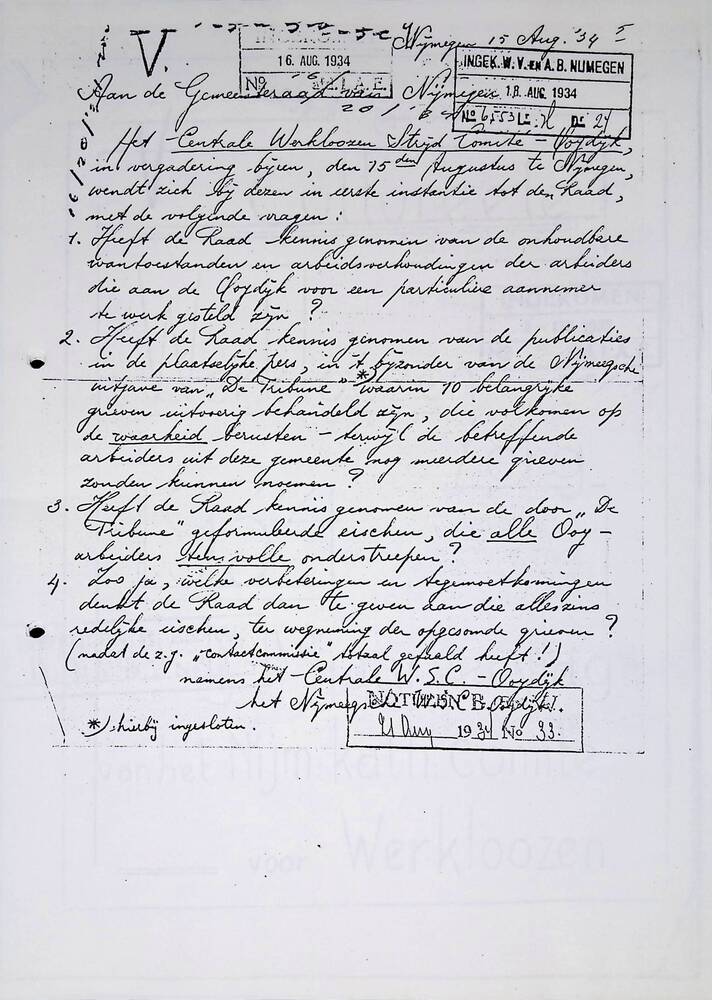 V.
Nijmegen 15 Aug. '34
INGEKOMEN
16 AUG. 1934
No
INGEK. W. V. EN A. B. NIJMEGEN
18 AUG. 1934
No 6553 L: H D: 27
Aan de Gemeenteraad van Nijmegen
Het Centrale Werkloozen Strijd Comité - Ooydijk,
in vergadering bijeen, den 15den Augustus te Nijmegen,
wendt zich bij dezen in eerste instantie tot den Raad,
met de volgende vragen:
1. Heeft de Raad kennis genomen van de onhoudbare
wantoestanden en arbeidsverhoudingen der arbeiders
die aan de Ooydijk voor een particuliere aannemer
te werk gesteld zijn?
2. Heeft de Raad kennis genomen van de publicaties
in de plaatselijke pers, in 't bijzonder van de Nijmeegsche
uitgave van „De Tribune" *) waarin 10 belangrijke
grieven uitvoerig behandeld zijn, die volkomen op
de waarheid berusten - terwijl de betreffende
arbeiders uit deze gemeente nog meerdere grieven
zouden kunnen noemen?
3. Heeft de Raad kennis genomen van de door „De
Tribune" geformuleerde eischen, die alle Ooy-
arbeiders ten volle onderstreepen?
4. Zoo ja, welke verbeteringen en tegemoetkomingen
denkt de Raad dan te geven aan die alleszins
redelijke eischen, ter wegneming der opgesomde grieven?
(nadat de z.g. „contactcommissie" totaal gefaald heeft!)
namens het Centrale W.S.C. - Ooydijk
het Nijmeegsche W.S.C. Ooydijk.
*) hierbij ingesloten.
NOTULEN B. EN W.
21 Aug 1934 No 33.
van het Nijm. Kath. Comité
voor Werkloozen